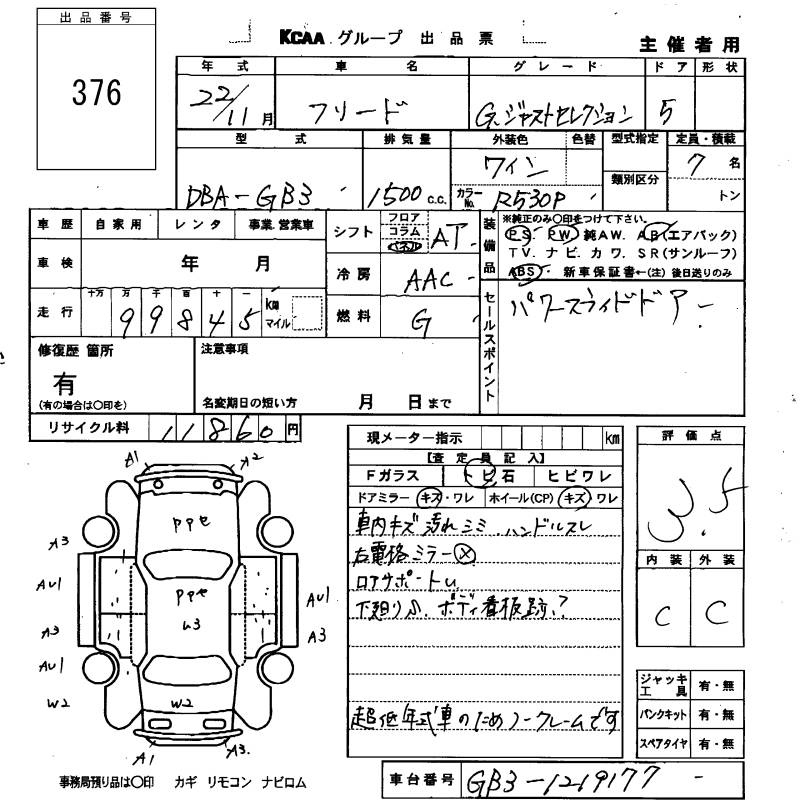 出品番号
376
KCAA グループ 出品票
主催者用
年式 車名 グレード ドア 形状
22/11月 フリード G.ジャストセレクション 5
型式 排気量 外装色 色替 型式指定 定員・積載
DBA-GB3 1500 c.c. ワイン 7名
カラーNo. R530P 類別区分 トン
車歴 自家用 レンタ 事業.営業車
車検 年 月
走行 十万 万 千 百 十 一
99845 km マイル
シフト フロア コラム パネル AT
冷房 AAC
燃料 G
装備品
※純正のみ〇印をつけて下さい。
PS. PW 純AW. AB(エアバック)
TV. ナビ. カワ. SR(サンルーフ)
ABS 新車保証書←(注) 後日送りのみ
セールスポイント
パワースライドドアー
修復歴 箇所
有
(有の場合は〇印を)
注意事項
名変期日の短い方 月 日まで
リサイクル料 11860円
現メーター指示 km
【査定員記入】
Fガラス トビ石 ヒビワレ
ドアミラー キズ・ワレ ホイール(CP) キズ ワレ
車内キズ 汚れ シミ ハンドルスレ
右電格ミラー✕
ロアサポートU
下廻り ボディ看板跡?
超低年式車のためノークレームです
評価点
3.5
内装 外装
C C
ジャッキ工具 有・無
パンクキット 有・無
スペアタイヤ 有・無
A1 A2
A3
AU1
A3
AU1
W2
PPセ
PPセ
U3
W2
AU1
A3
A1 A3.
事務局預り品は〇印 カギ リモコン ナビロム
車台番号 GB3-1219177